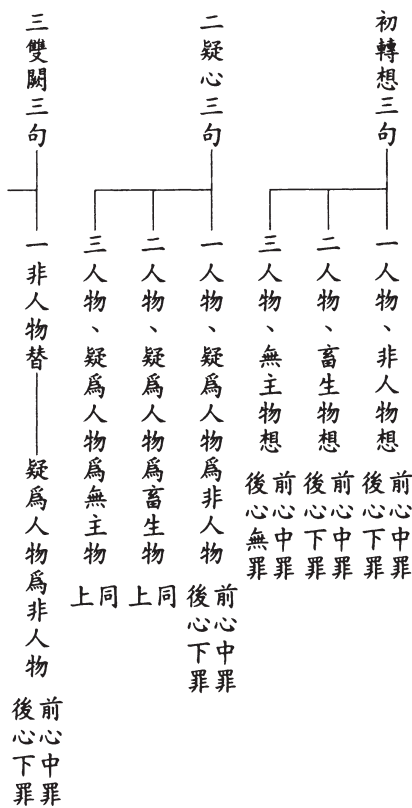 初轉想三句
一人物、非人物想
前心中罪
後心下罪
二人物、畜生物想
前心中罪
後心下罪
三人物、無主物想
前心中罪
後心無罪
二疑心三句
一人物、疑爲人物爲非人物
前心中罪
後心下罪
二人物、疑爲人物爲畜生物
同
上
三人物、疑爲人物爲無主物
同
上
三雙闕三句
一非人物替
疑爲人物爲非人物
前心中罪
後心下罪